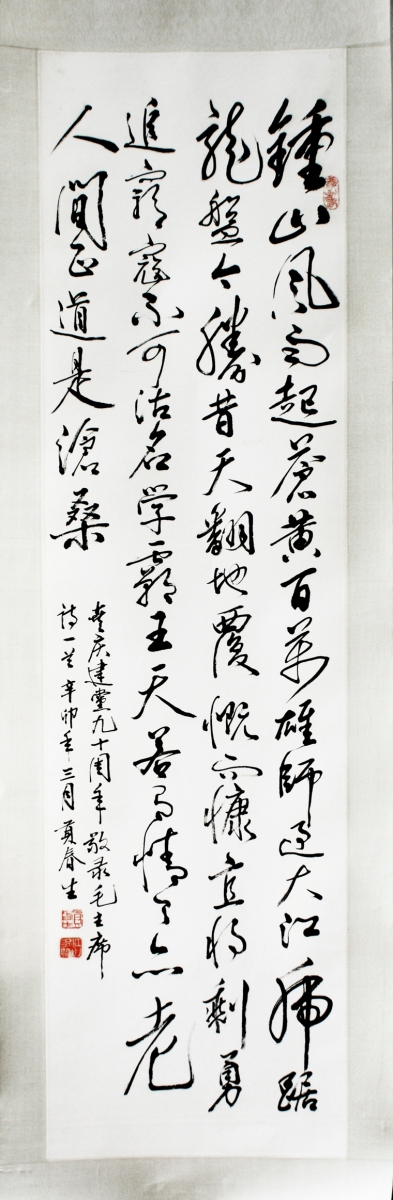 鍾山風雨起蒼黄百萬雄師過大江虎踞
龍盤今勝昔天翻地覆慨而慷宜將剩勇
追窮寇不可沽名学霸王天若有情天亦老
人間正道是滄桑
喜庆建黨九十周年敬录毛主席
詩一首辛卯年三月春生